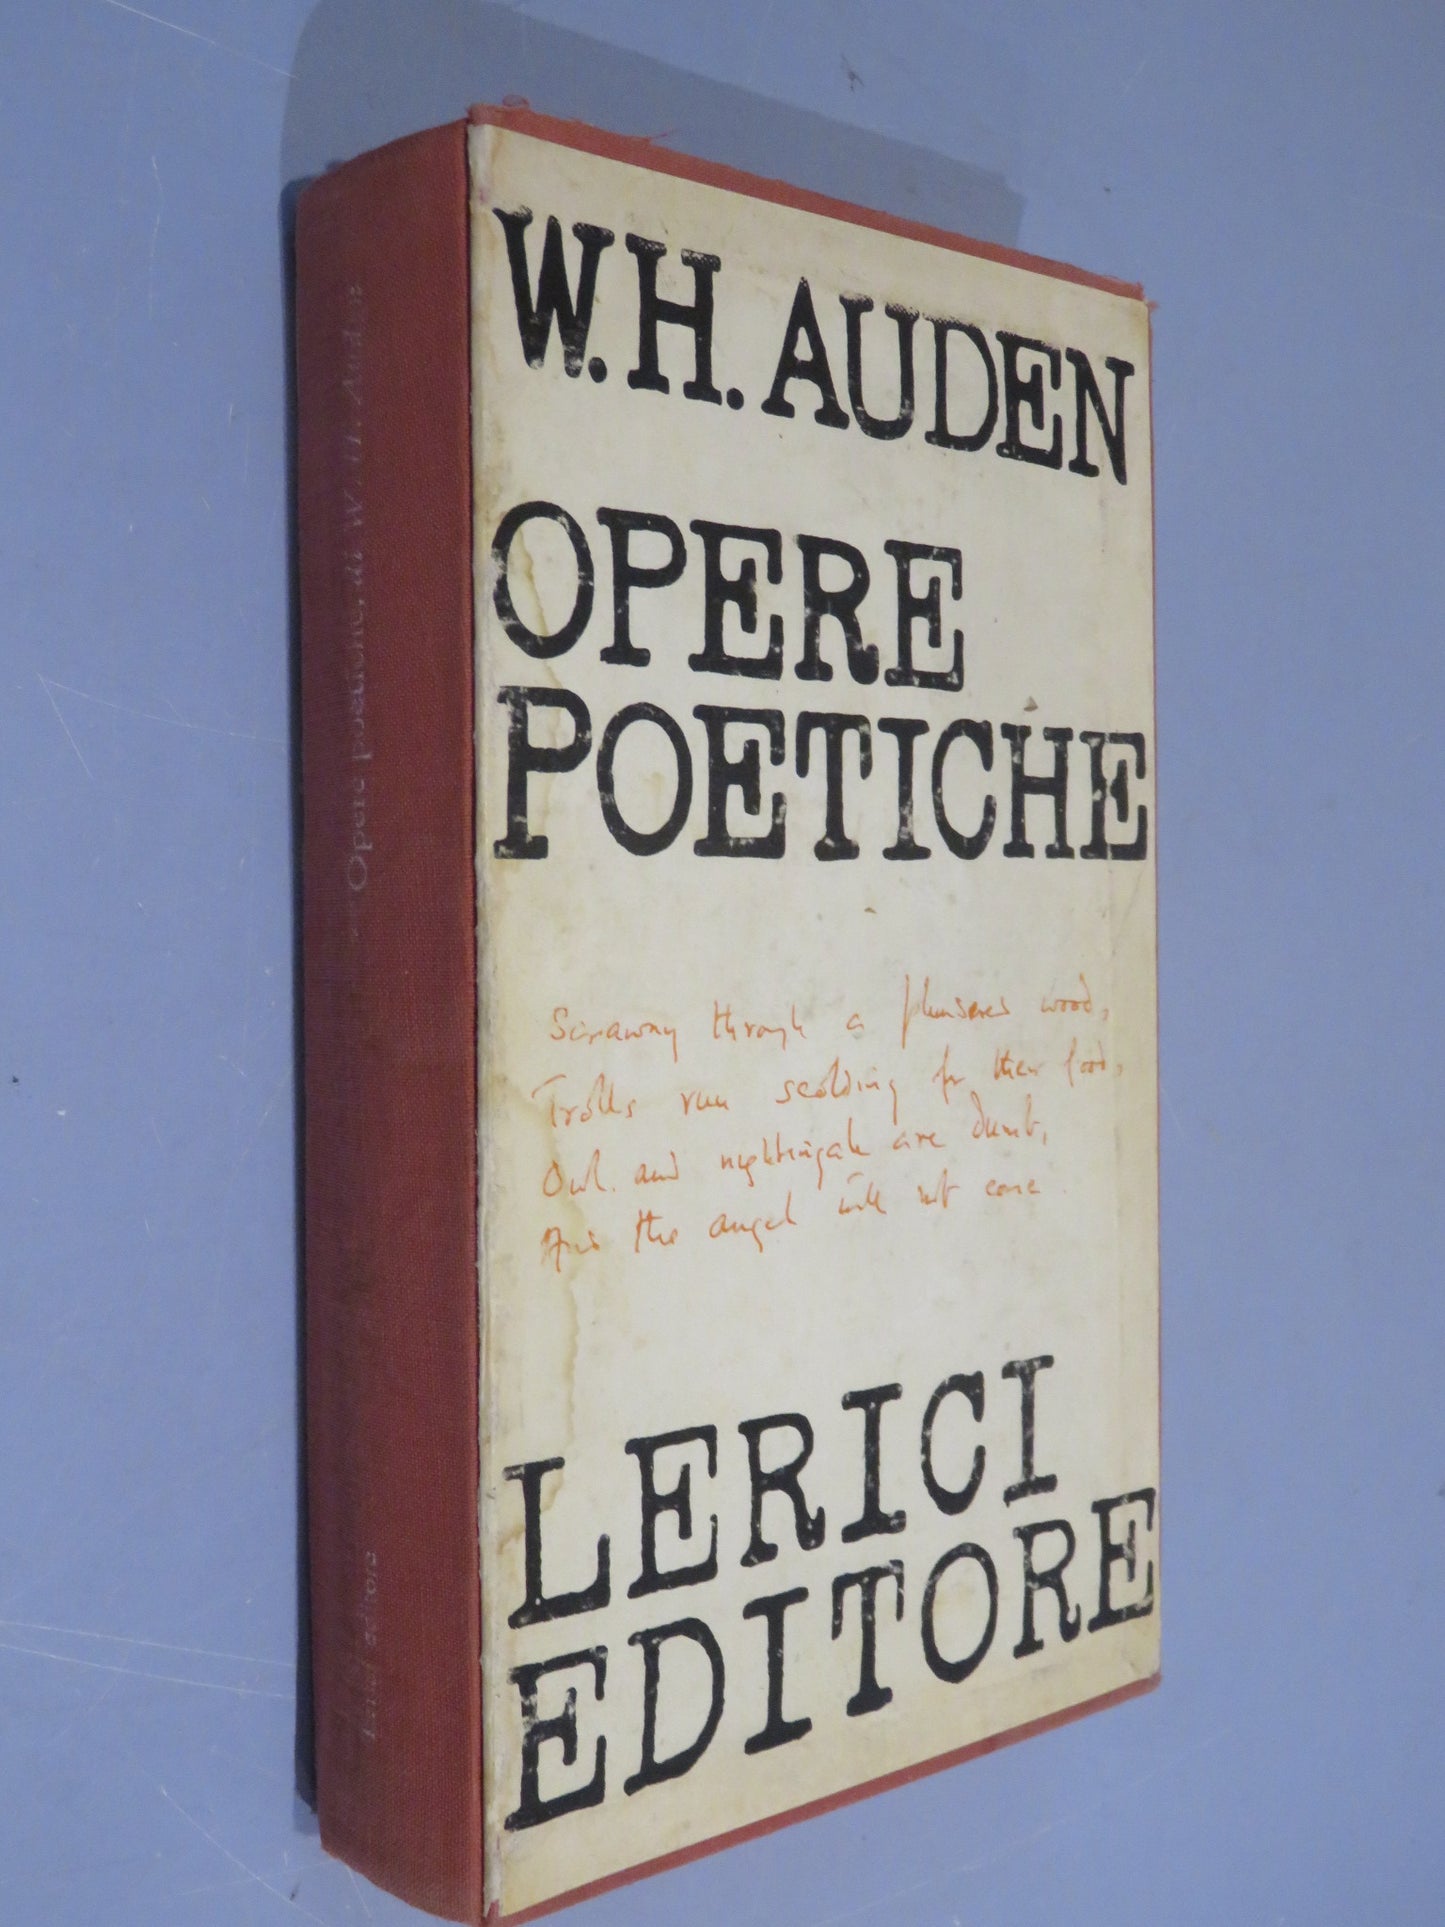 W.H. AUDEN
OPERE
POETICHE
Starving through a leafless wood,
Trolls run scolding for their food,
Owl and nightingale are dumb,
And the angel will not come.
LERICI
EDITORE
Opere poetiche, di W. H. Auden
Lerici editore